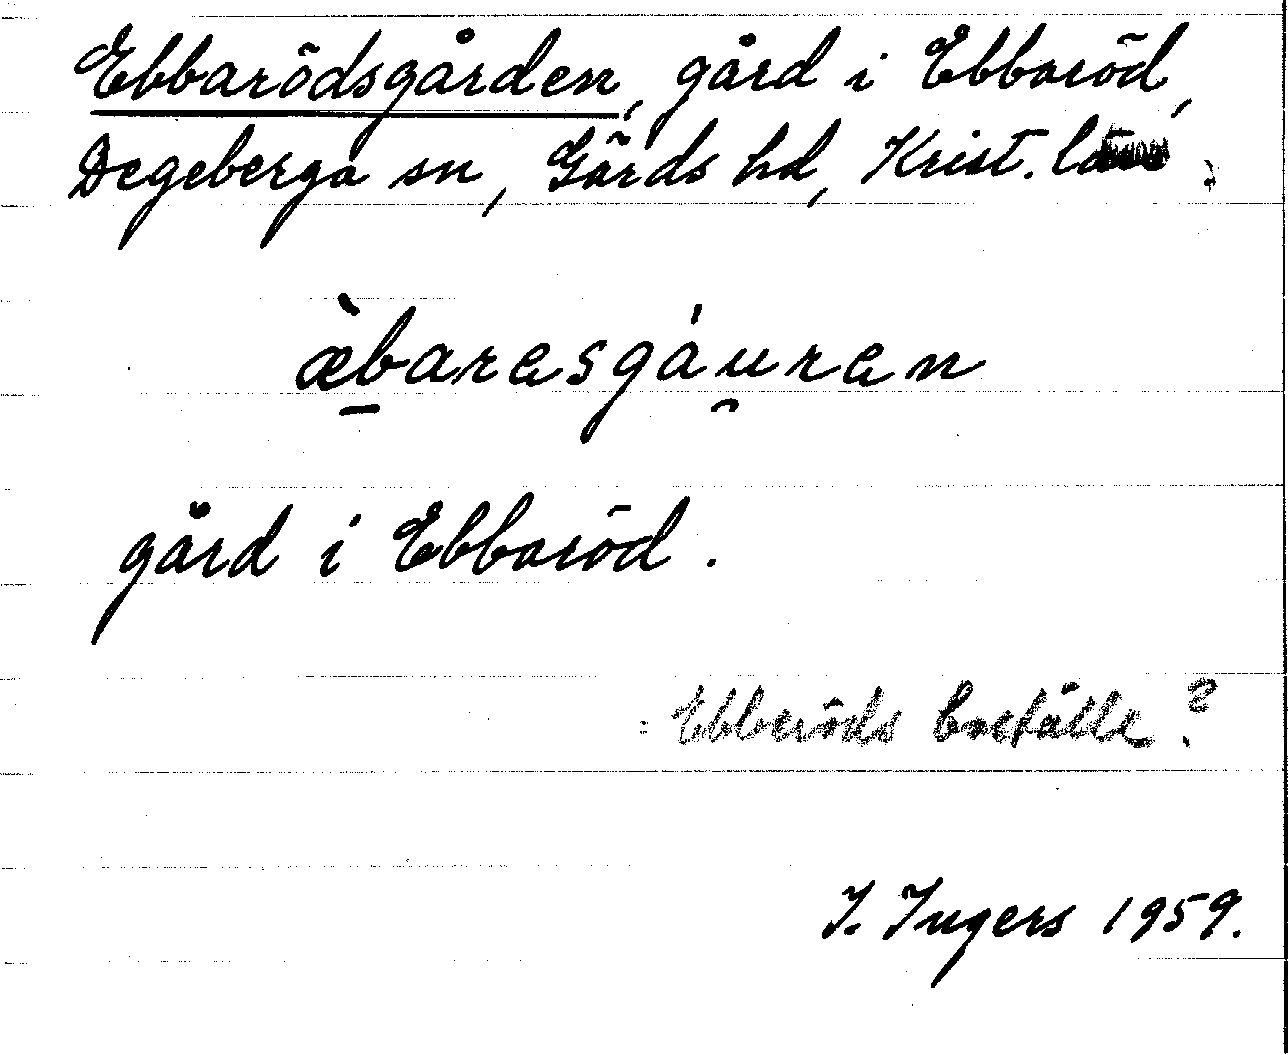 Ebbarödsgården, gård i Ebbaröd,
Degeberga sn, Gärds hd, Krist. län
æ̀ḇarasgáu̯ran
gård i Ebbaröd.
= Ebberöds boställe?
I. Ingers 1959.